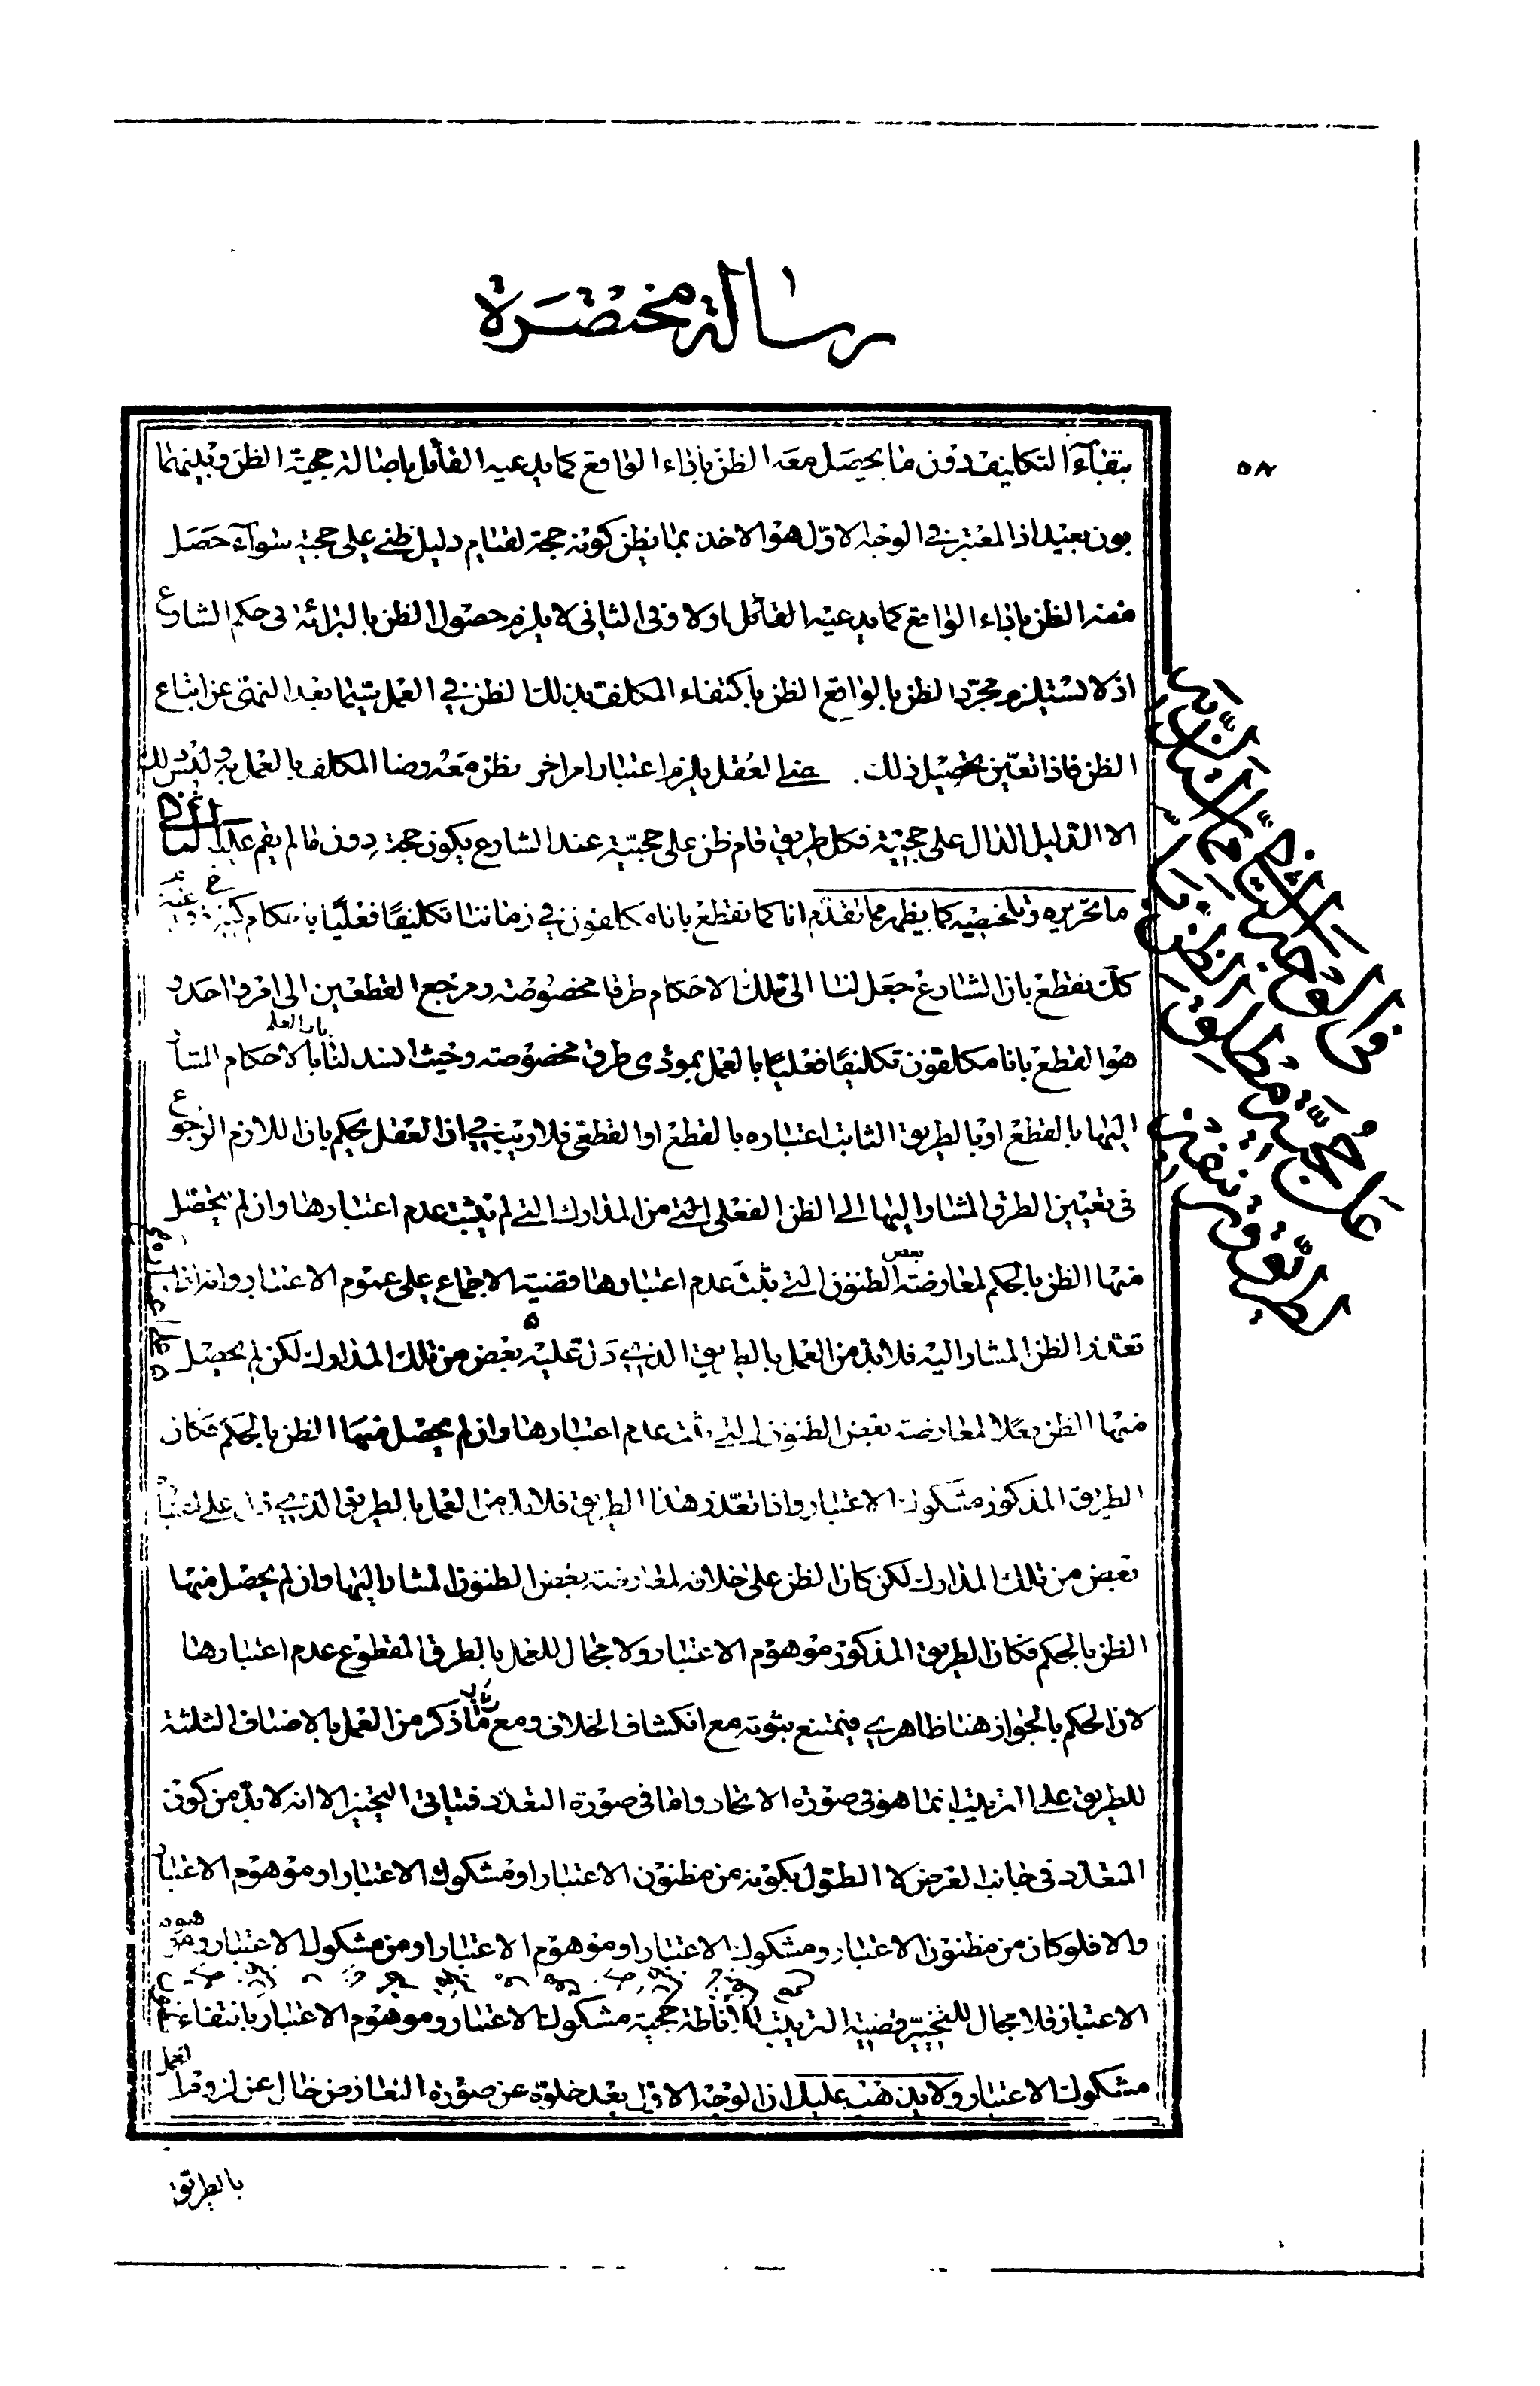 رسالة مختصرة
٥٨
ببقاء التكليف دون ما يحصل معه الظن باداء الواقع كما يدعيه القائل باصالة حجية الظن وبينهما
بون بعيد اذ المعتبر في الوجه الاول هو الاخذ بما يظن كونه حجة لقيام دليل ظني على حجيته سواء حصل
منه الظن باداء الواقع كما يدعيه القائل اولا وفي الثاني لا يلزم حصول الظن بالبرائة في حكم الشارع
اذ لا يستلزم مجرد الظن بالواقع الظن باكتفاء المكلف بذلك الظن في العمل سيما بعد النهي عن اتباع
الظن فاذا تعين تحصيل ذلك العقل يلزم اعتبار امر اخر يظن معه رضا المكلف بالعمل به وليس ذلك
الا الدليل الدال على حجيته فكل طريق قام ظن على حجيته عند الشارع يكون حجة دون ما لم يقم عليه
ما تحريره وتلخيصه كما يظهر مما تقدم انا كما نقطع بانا مكلفون في زماننا تكليفا فعليا باحكام كثيرة فرعية
كك نقطع بان الشارع جعل لنا الى تلك الاحكام طرقا مخصوصة ومرجع القطعين الى امر واحد و
هو القطع بانا مكلفون تكليفا فعليا بالعمل بمودى طرق مخصوصة وحيث انسد لنا باب العلم بالاحكام المشار
اليها بالقطع او بالطريق الثابت اعتباره بالقطع او القطعي فلا ريب في ان العقل يحكم بان اللازم الرجوع
في تعيين الطرق المشار اليها الى الظن الفعلي من المدارك التي لم يثبت عدم اعتبارها وان لم يحصل
منها الظن بالحكم لمعارضته بعض الظنون التي يثبت عدم اعتبارها قضية الاجماع على عموم الاعتبار وانه اذا
تعذر الظن المشار اليه فلا بد من العمل بالطريق الذي دل عليه بعض من تلك المدارك لكن لم يحصل
منها الظن فعلا لمعارضته بعض الظنون التي ثبت عدم اعتبارها وان لم يحصل منها الظن بالحكم فكان
الطريق المذكور مشكوك الاعتبار واذا تعذر هذا الطريق فلا بد من العمل بالطريق الذي دل على اعتباره
بعض من تلك المدارك لكن كان الظن على خلافه لمعارضته بعض الظنون المشار اليها وان لم يحصل منها
الظن بالحكم فكان الطريق المذكور موهوم الاعتبار ولا مجال للعمل بالطرق المقطوع عدم اعتبارها
لان الحكم بالجواز هنا ظاهري فيمتنع ثبوته مع انكشاف الخلاف ومع ما ذكر من العمل بالاصناف الثلثة
للطريق على الترتيب انما هو في صورة الاتحاد واما في صورة التعدد فيتاتى التخيير الا انه لا بد من كون
المتعدد في جانب العرض لا الطول بكونه من مظنون الاعتبار او مشكوك الاعتبار او موهوم الاعتبار
والا فلو كان من مظنون الاعتبار ومشكوك الاعتبار او موهوم الاعتبار او من مشكوك الاعتبار وموهوم
الاعتبار فلا مجال للتخيير قضية الترتيب اناطة حجية مشكوك الاعتبار وموهوم الاعتبار بانتفاء
مشكوك الاعتبار ولا يذهب عليك ان الوجه الاول بعد خلوه عن صورة التعارض خال عن لزوم العمل
بالطريق